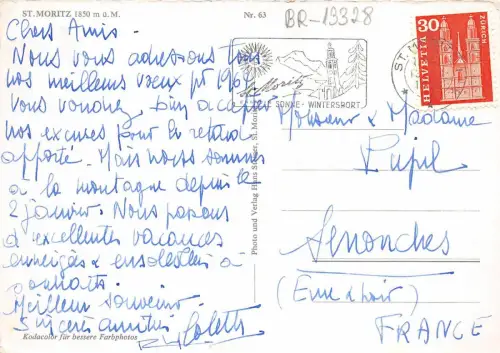 ST. MORITZ 1850 m ü. M.
Nr. 63
BR-19328
Chers Amis -
Nous vous adressons tous
nos meilleurs vœux pr 196
Vous voudrez bien accepter
nos excuses pour le retard
apporté. Mais nous sommes
à la montagne depuis le
2 janvier. Nous passons
d'excellentes vacances
enneigées & ensoleillées à
souhaits.
Meilleur souvenir.
Sincères amitiés
Colette
Kodacolor für bessere Farbphotos
Photo und Verlag Hans Steiner, St. Moritz
St. Moritz
SONNE · WINTERSPORT
ST. M
30
HELVETIA
ZÜRICH
Monsieur & Madame
Pupil
Senonches
(Eure & Loir)
FRANCE